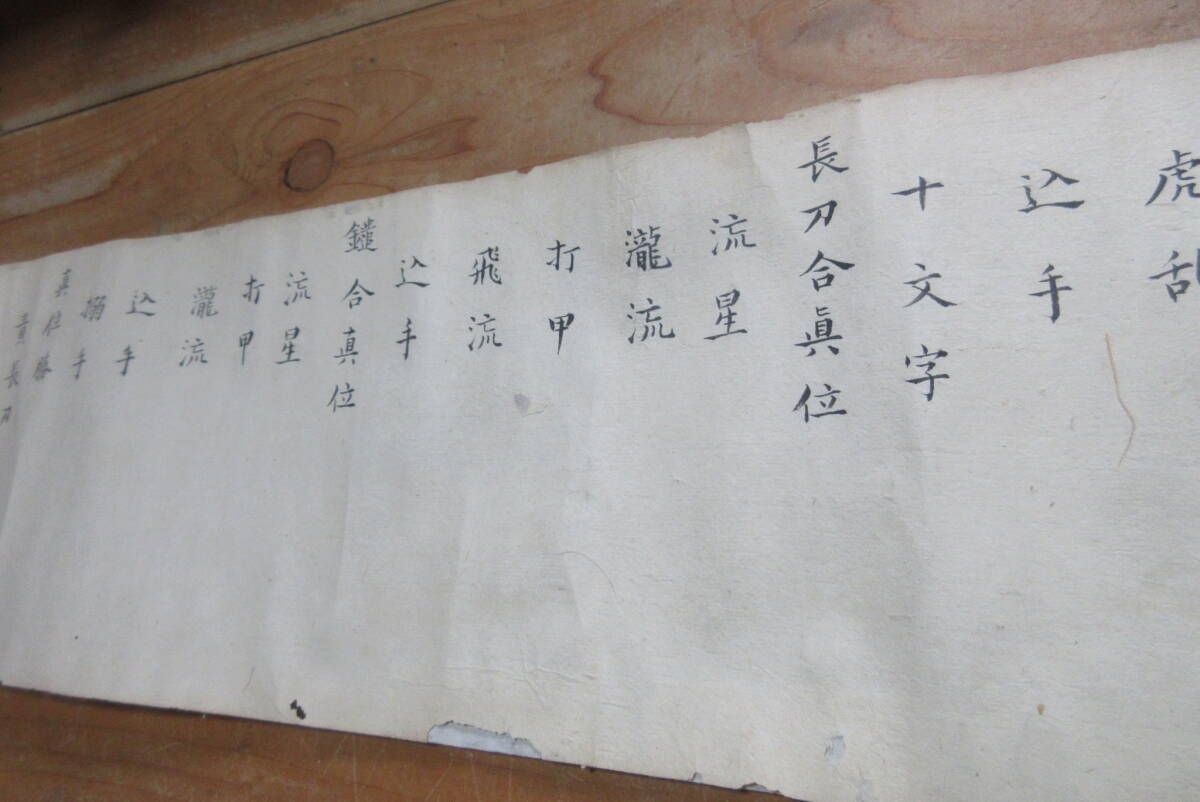 虎乱
込手
十文字
長刀合眞位
流星
瀧流
打甲
飛流
込手
鑓合真位
流星
打甲
瀧流
込手
搦手
真位勝
長刀